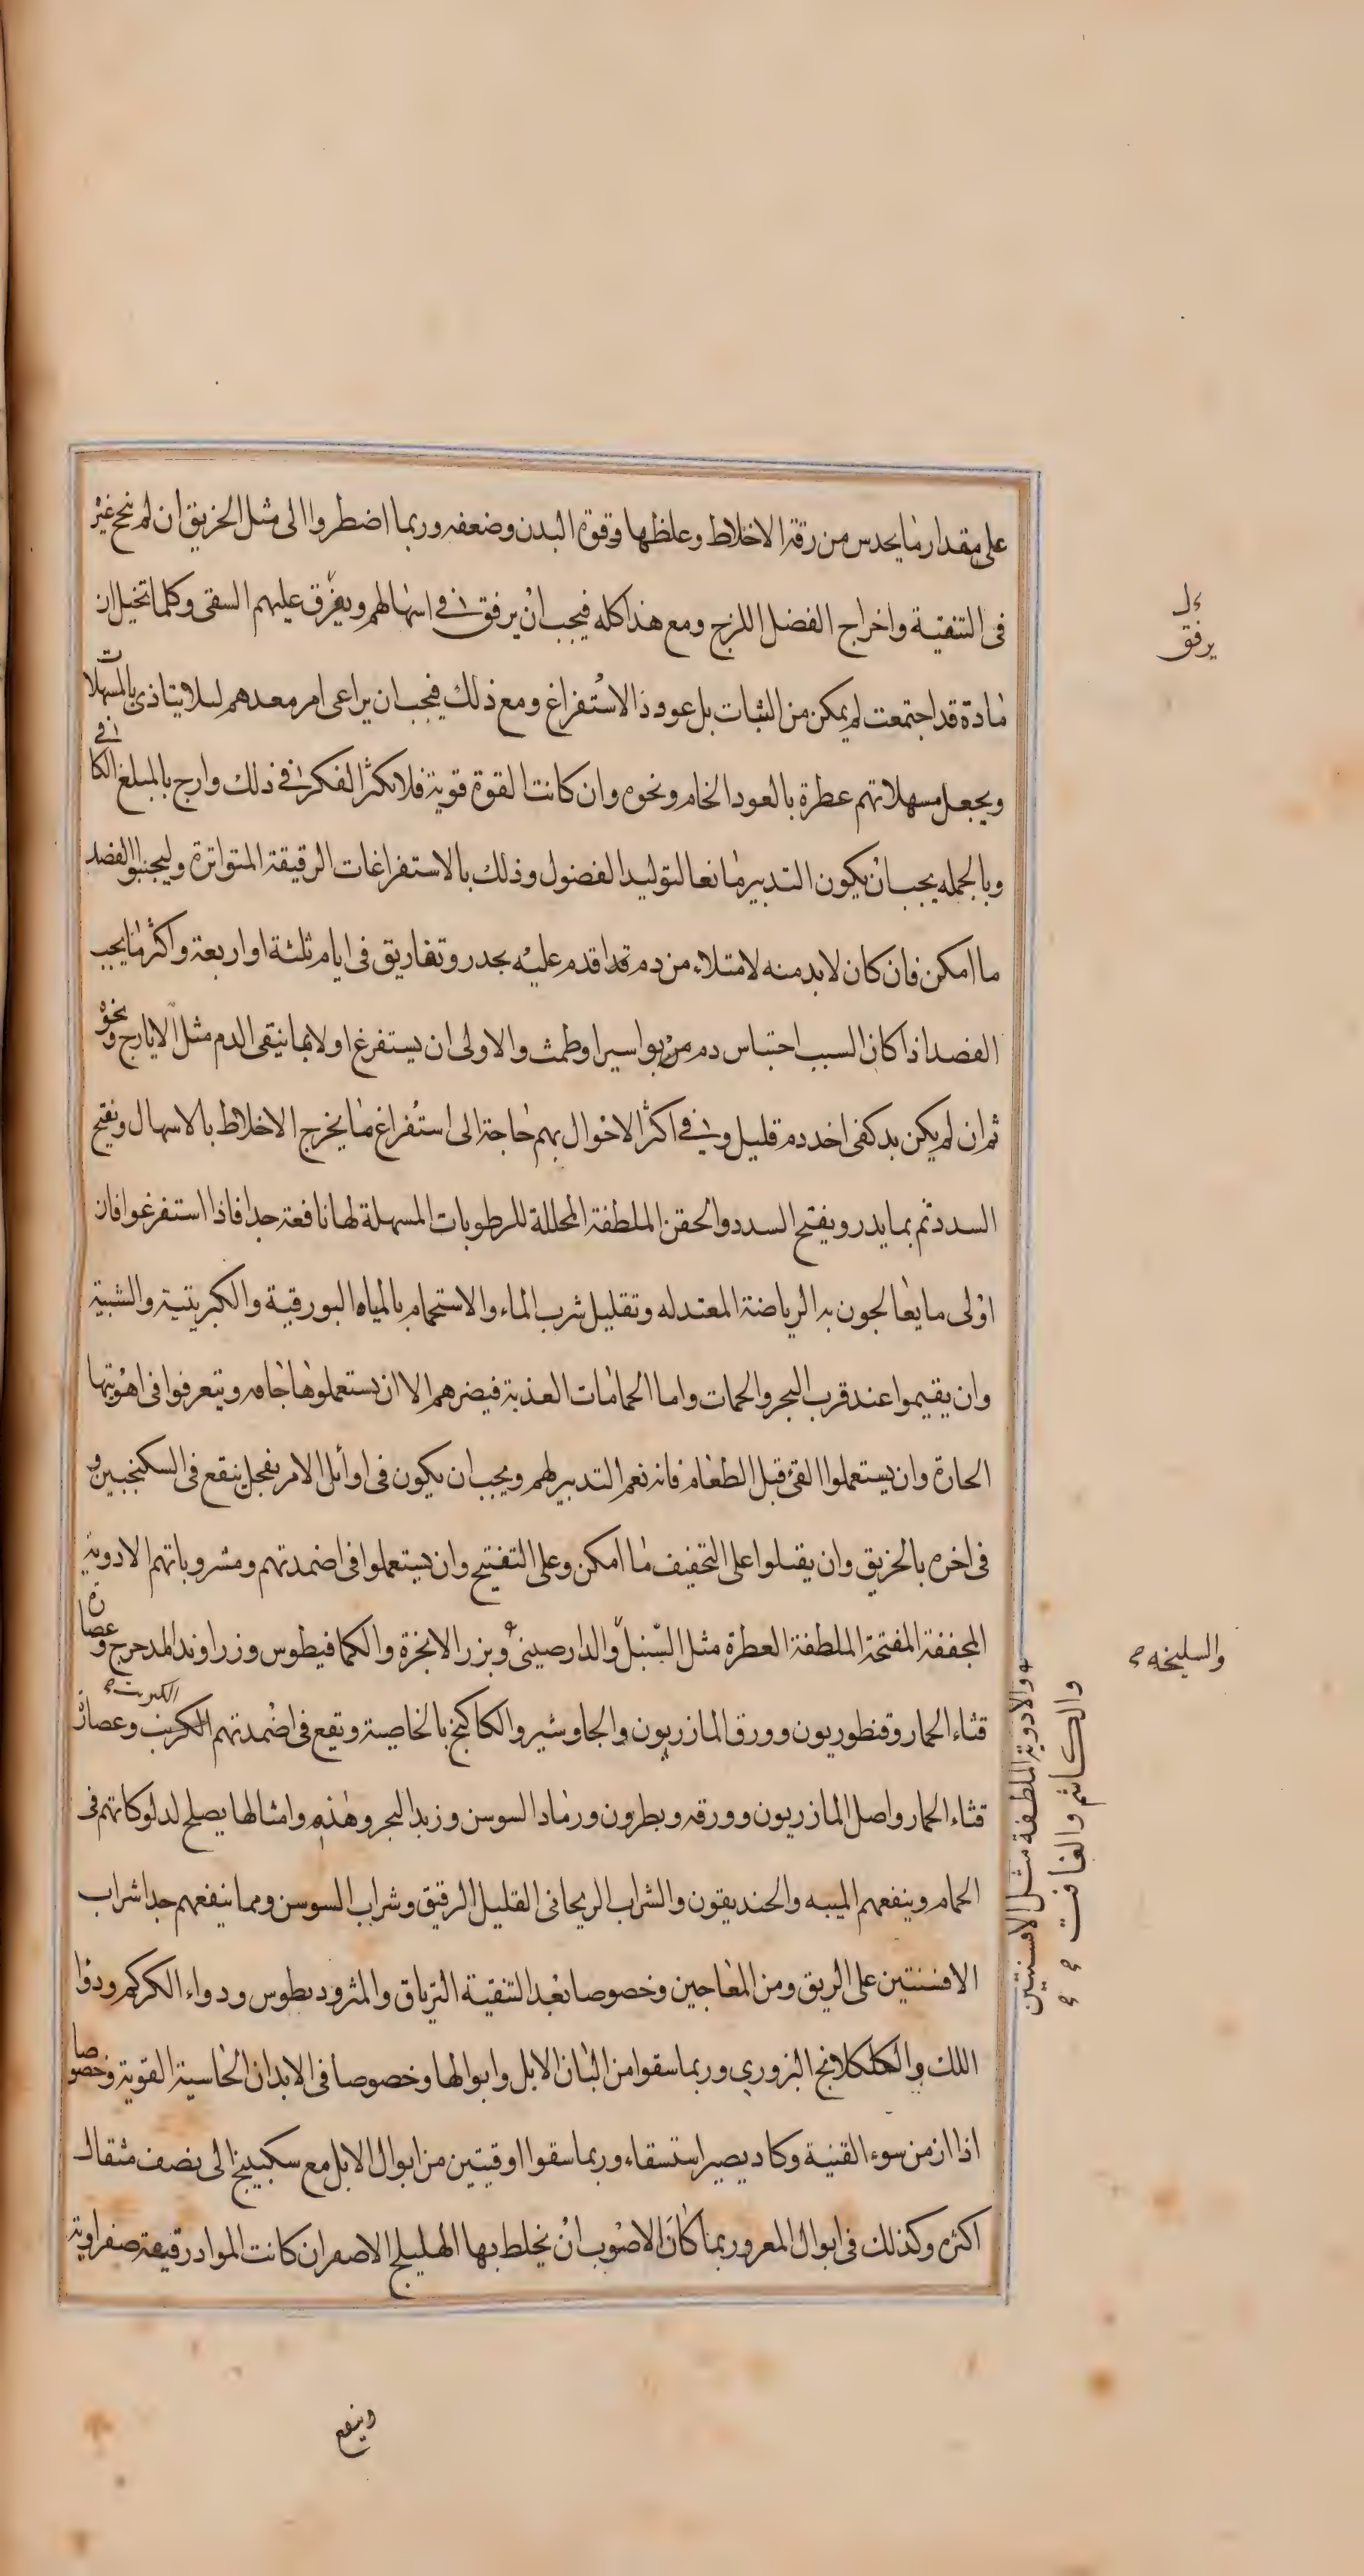 على مقدار ما يحدس من رقة الاخلاط وغلظها وقوة البدن وضعفه وربما اضطروا الى مثل الخربق ان لم ينجع غيره
فى التنقية واخراج الفضل اللزج ومع هذا كله فيجب ان يرفق فى اسهالهم ويفرق عليهم السقى وكلما تخيل ان
مادة قد اجتمعت لم يمكن من الثبات بل عوود الاستفراغ ومع ذلك فيجب ان يراعى امر معدهم لئلا يتاذى بالمسهلات
ويجعل مسهلاتهم عطرة بالعود الخام ونحوه وان كانت القوة قوية فلا تكثر الفكر فى ذلك وارح بالمبلغ الكافى
وبالجمله يجب ان يكون التدبير مانعا لتوليد الفضول وذلك بالاستفراغات الرقيقة المتواترة وليجنبوا الفصد
ما امكن فان كان لا بد منه لامتلاء من دم قد اقدم عليه بحذر وتفاريق فى ايام ثلثة او اربعة واكثر ما يجب
الفصد اذا كان السبب احتباس دم من بواسير او طمث والاولى ان يستفرغ اولا بما ينقى الدم مثل الايارج ونحوه
ثم ان لم يكن بد كفى اخذ دم قليل وفى اكثر الاحوال بهم حاجة الى استفراغ ما يخرج الاخلاط بالاسهال ويفتح
السدد ثم بما يدر ويفتح السدد والحقن الملطفة المحللة للرطوبات المسهلة لها نافعة جدا فاذا استفرغوا فان
اولى ما يعالجون به الرياضة المعتدله وتقليل شرب الماء والاستحمام بالمياه البورقية والكبريتية والشبية
وان يقيموا عند قرب البحر والحمات واما الحمامات العذبة فيضرهم الا ان يستعملوها جافه ويتعرفوا فى اهويتها
الحارة وان يستعملوا القئ قبل الطعام فانه نعم التدبير لهم ويجب ان يكون فى اوائل الامر بفجل ينقع فى السكنجبين و
فى اخره بالخربق وان يقبلوا على التجفيف ما امكن وعلى التفتيح وان يستعملوا فى اضمدتهم ومشروباتهم الادوية
المجففة المفتحة الملطفة العطرة مثل السنبل والدارصينى وبزر الانجرة والكمافيطوس وزراوند المدحرج وعصارة
قثاء الحمار وقنطوريون وورق المازريون والجاوشير والكاكنج بالخاصية ويقع فى اضمدتهم الكرنب وعصارة
الكبريت
قثاء الحمار واصل المازريون وورقه وبطرون ورماد السوسن وزبد البحر وهذه وامثالها يصلح لدلوكاتهم فى
الحمام وينفعهم الميبه والخنديقون والشراب الريحانى القليل الرقيق وشراب السوسن ومما ينفعهم جدا شراب
الافسنتين على الريق ومن المعاجين وخصوصا بعد التنقية الترياق والمثروديطوس ودواء الكركم ودوا
اللك والكلكلانج البزورى وربما سقوا من البان الابل وابوالها وخصوصا فى الابدان الجاسية القوية وخصوصا
اذا ازمن سوء القنية وكاد يصير استسقاء وربما سقوا اوقيتين من ابوال الابل مع سكبينج الى نصف مثقال
اكثره وكذلك فى ابوال المعز وربما كان الاصوب ان يخلط بها الهليلج الاصفر ان كانت المواد رقيقة صفراوية
يرفق
والسليخه
والادوية الملطفة مثل الافسنتين
والكاشم والغافت
وينفع